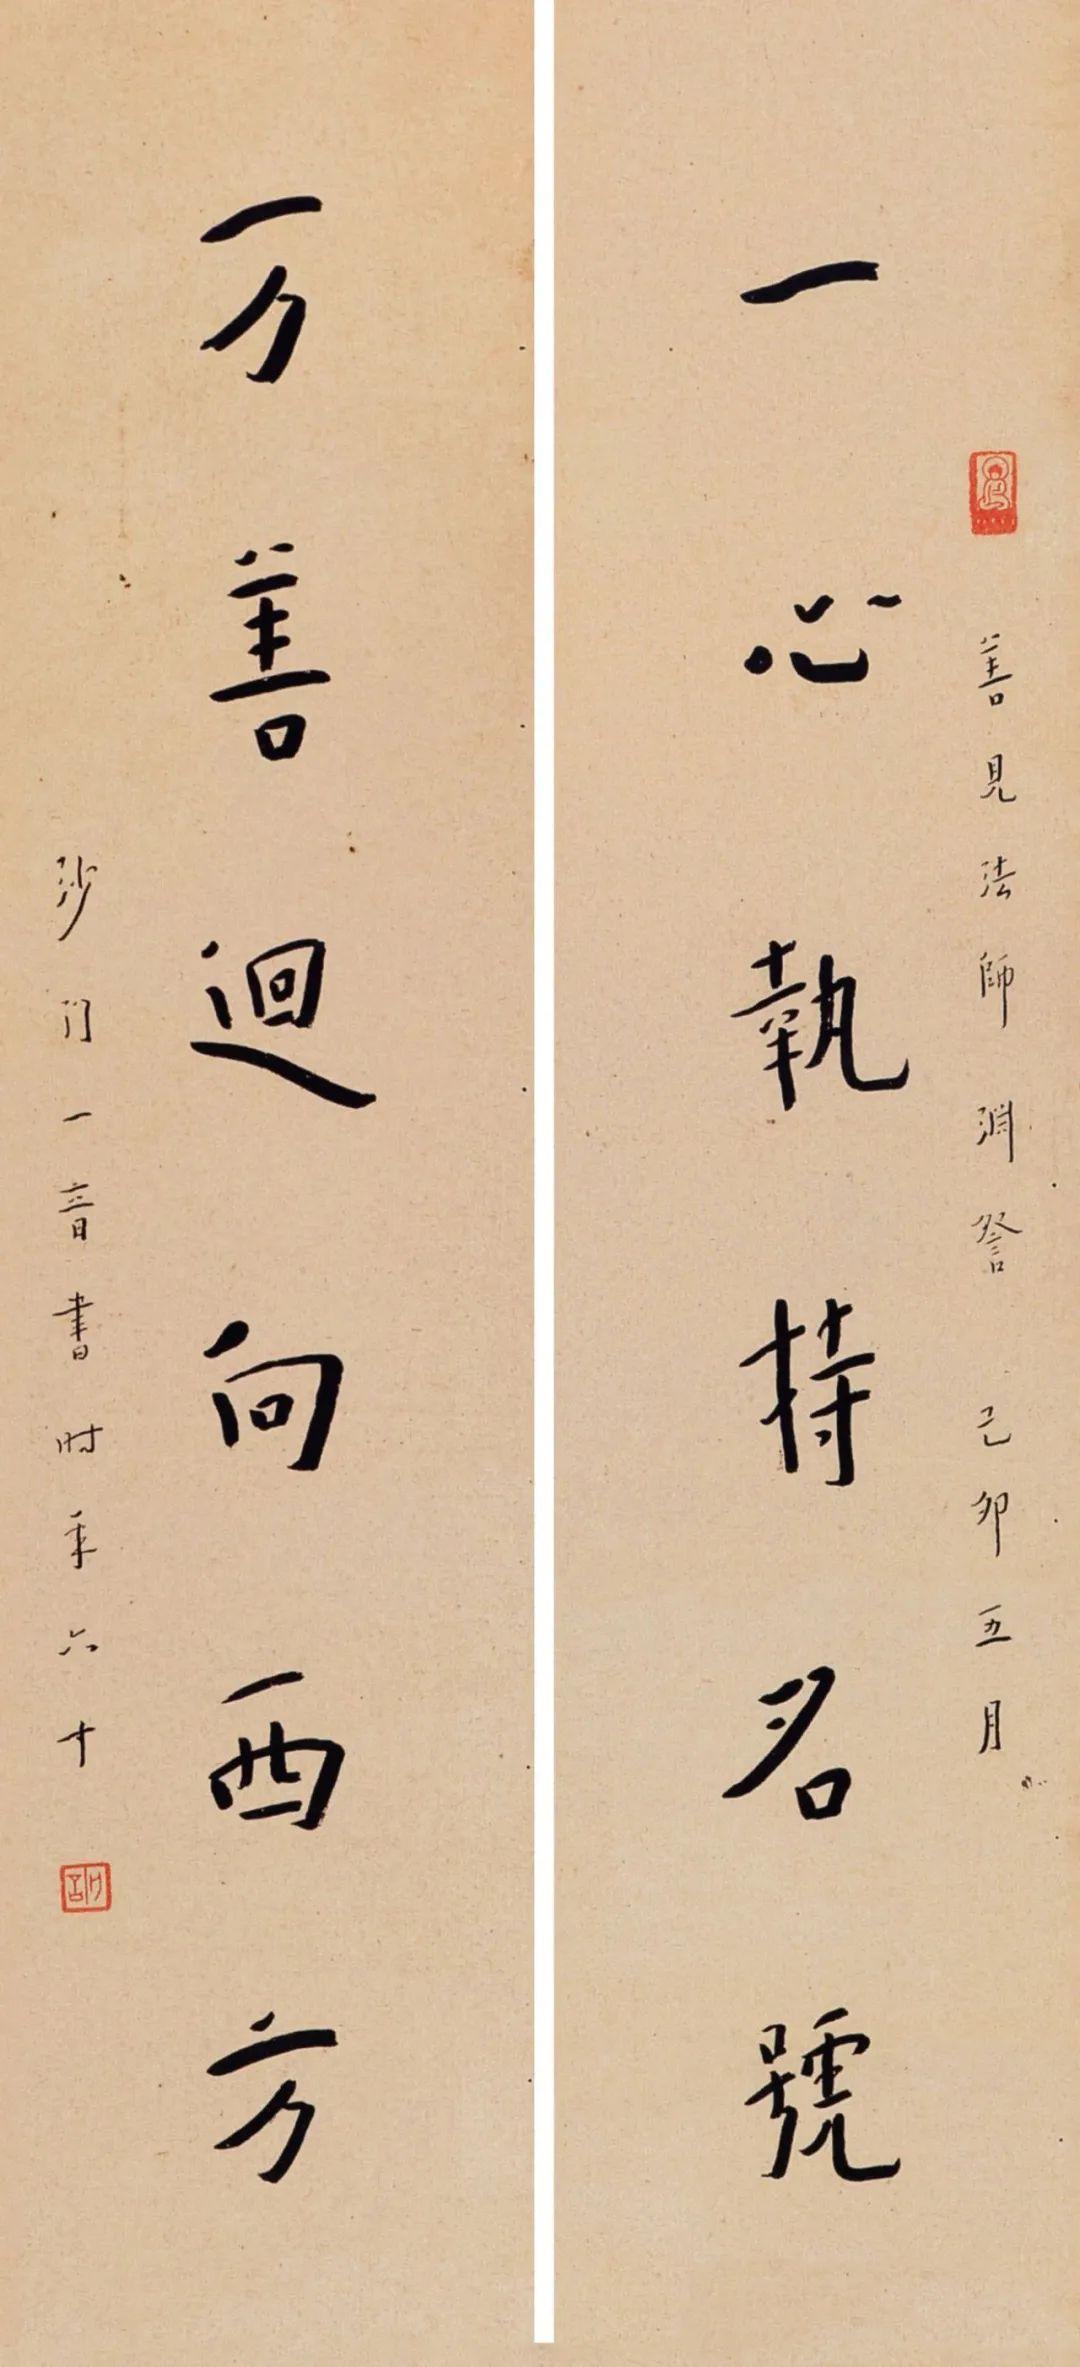 一心執持名號
善見法師淵詧 己卯五月
万善迴向西方
沙门一音書时年六十